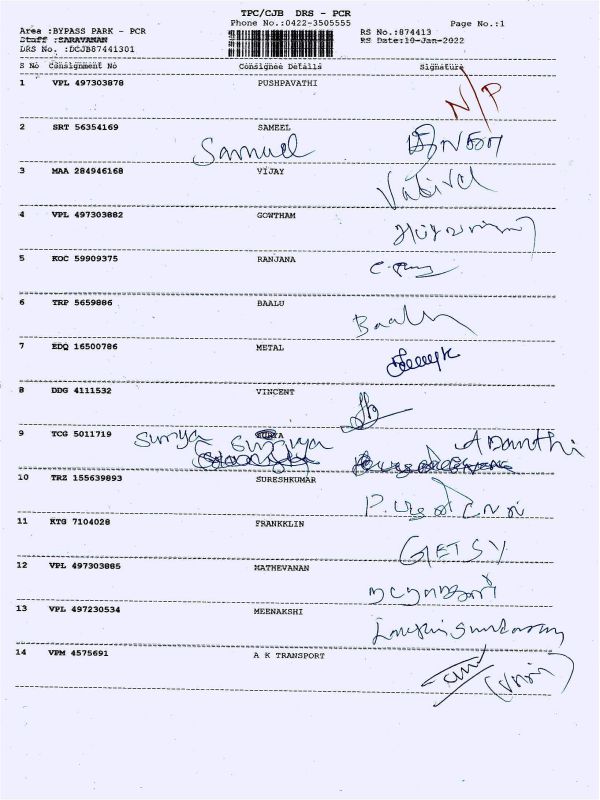 TPC/CJB DRS - PCR
Phone No.:0422-3505555
Page No.:1
Area :BYPASS PARK - PCR
RS No.:874413
Staff :SARAVANAN
RS Date:10-Jan-2022
DRS No. :DCJB87441301
S No Consignment No Consignee Details Signature
1 VPL 497303878 PUSHPAVATHI
N/P
2 SRT 56354169 SAMEEL
Samuel
3 MAA 284946168 VIJAY
Vadivel
4 VPL 497303882 GOWTHAM
5 KOC 59909375 RANJANA
6 TRP 5659886 BAALU
Baalu
7 EDQ 16500786 METAL
8 DDG 4111532 VINCENT
9 TCG 5011719 SURYA
Surya Surya
10 TRZ 155639893 SURESHKUMAR
11 KTG 7104028 FRANKKLIN
GETSY
12 VPL 497303885 MATHEVANAN
13 VPL 497230534 MEENAKSHI
14 VPM 4575691 A K TRANSPORT